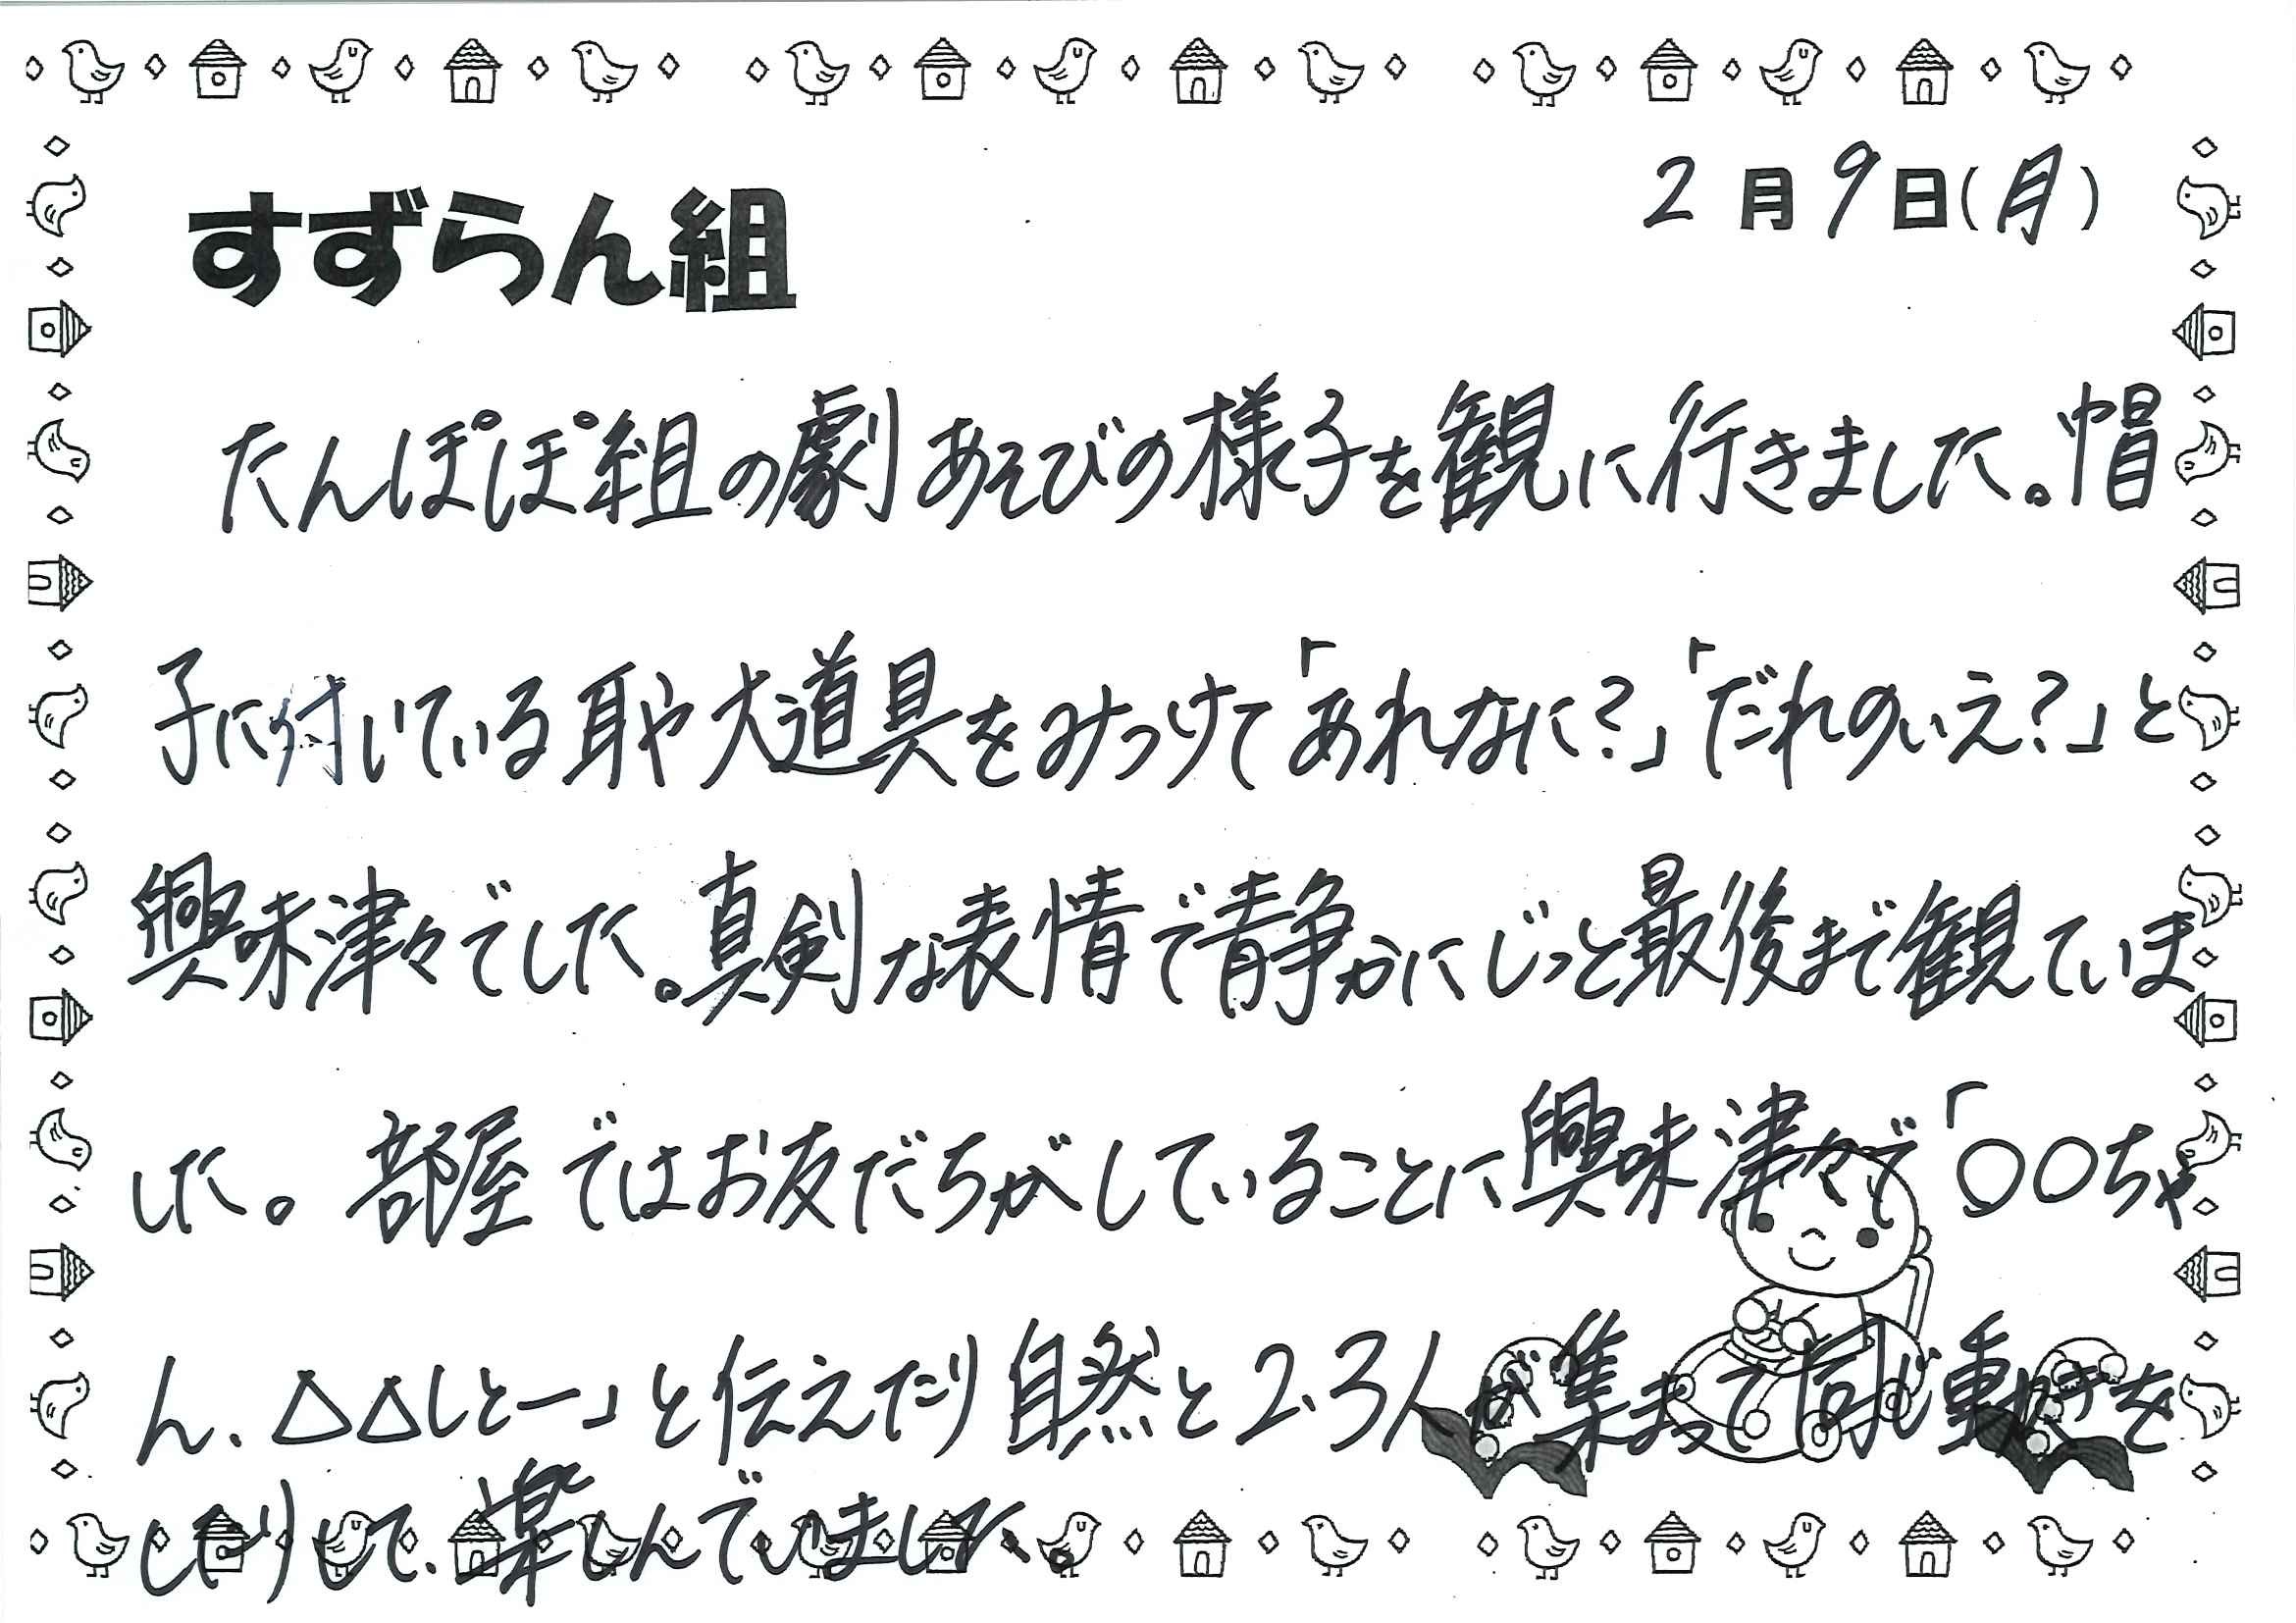 2月9日(月)
すずらん組
たんぽぽ組の劇あそびの様子を観に行きました。帽
子に付いている耳や大道具をみつけて「あれなに?」「だれのいえ?」と
興味津々でした。真剣な表情で静かにじっと最後まで観ていま
した。部屋ではお友だちがしていることに興味津々で「〇〇ちゃ
ん、△△しとー」と伝えたり自然と2、3人が集まって同じ動きを
したりして、楽しんでいました。